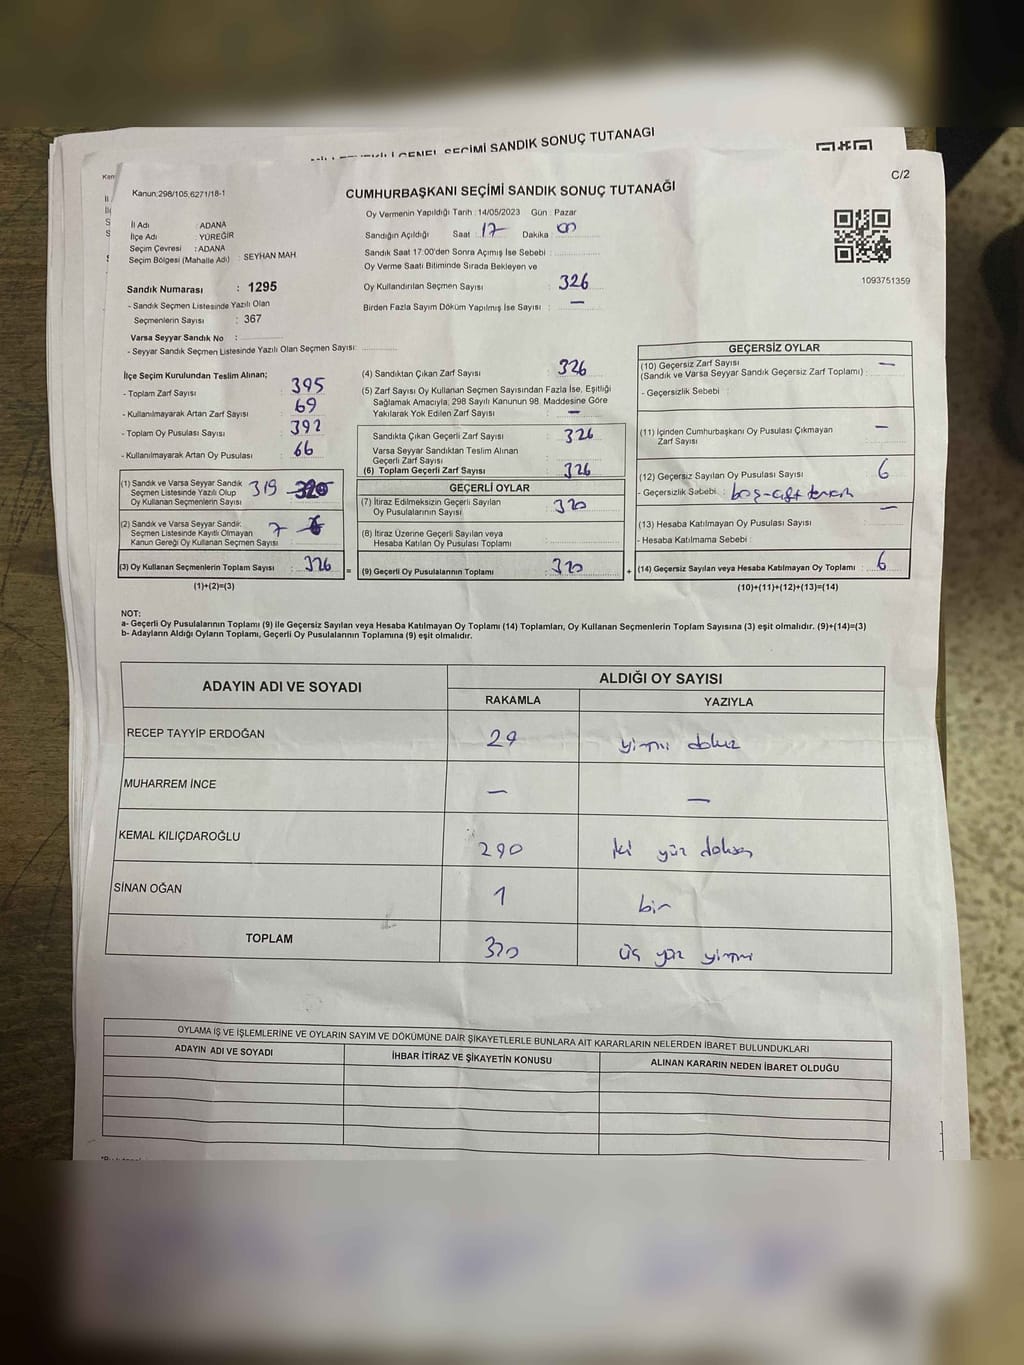 GENEL SEÇİMİ SANDIK SONUÇ TUTANAĞI
C/2
Kanun:298/105,6271/18-1
CUMHURBAŞKANI SEÇİMİ SANDIK SONUÇ TUTANAĞI
İl Adı : ADANA
İlçe Adı : YÜREĞİR
Seçim Çevresi : ADANA
Seçim Bölgesi (Mahalle Adı) : SEYHAN MAH
Sandık Numarası : 1295
- Sandık Seçmen Listesinde Yazılı Olan
Seçmenlerin Sayısı : 367
Varsa Seyyar Sandık No :
- Seyyar Sandık Seçmen Listesinde Yazılı Olan Seçmen Sayısı:
Oy Vermenin Yapıldığı Tarih : 14/05/2023 Gün : Pazar
Sandığın Açıldığı Saat : 17 Dakika : 00
Sandık Saat 17:00'den Sonra Açımış İse Sebebi :
Oy Verme Saati Bitiminde Sırada Bekleyen ve
Oy Kullandırılan Seçmen Sayısı : 326
Birden Fazla Sayım Döküm Yapılmış İse Sayısı : —
1093751359
İlçe Seçim Kurulundan Teslim Alınan;
- Toplam Zarf Sayısı : 395
- Kullanılmayarak Artan Zarf Sayısı : 69
- Toplam Oy Pusulası Sayısı : 392
- Kullanılmayarak Artan Oy Pusulası : 66
(1) Sandık ve Varsa Seyyar Sandık
Seçmen Listesinde Yazılı Olup
Oy Kullanan Seçmenlerin Sayısı 319 320
(2) Sandık ve Varsa Seyyar Sandık
Seçmen Listesinde Kayıtlı Olmayan
Kanun Gereği Oy Kullanan Seçmen Sayısı 7
(3) Oy Kullanan Seçmenlerin Toplam Sayısı : 326
(1)+(2)=(3)
(4) Sandıktan Çıkan Zarf Sayısı : 326
(5) Zarf Sayısı Oy Kullanan Seçmen Sayısından Fazla İse, Eşitliği
Sağlamak Amacıyla; 298 Sayılı Kanunun 98. Maddesine Göre
Yakılarak Yok Edilen Zarf Sayısı : —
Sandıkta Çıkan Geçerli Zarf Sayısı : 326
Varsa Seyyar Sandıktan Teslim Alınan
Geçerli Zarf Sayısı :
(6) Toplam Geçerli Zarf Sayısı : 326
GEÇERLİ OYLAR
(7) İtiraz Edilmeksizin Geçerli Sayılan
Oy Pusulalarının Sayısı : 320
(8) İtiraz Üzerine Geçerli Sayılan veya
Hesaba Katılan Oy Pusulası Toplamı :
= (9) Geçerli Oy Pusulalarının Toplamı : 320
GEÇERSİZ OYLAR
(10) Geçersiz Zarf Sayısı
(Sandık ve Varsa Seyyar Sandık Geçersiz Zarf Toplamı) : —
- Geçersizlik Sebebi :
(11) İçinden Cumhurbaşkanı Oy Pusulası Çıkmayan
Zarf Sayısı : —
(12) Geçersiz Sayılan Oy Pusulası Sayısı : 6
- Geçersizlik Sebebi : boş-çift tercih
(13) Hesaba Katılmayan Oy Pusulası Sayısı : —
- Hesaba Katılmama Sebebi :
+ (14) Geçersiz Sayılan veya Hesaba Katılmayan Oy Toplamı : 6
(10)+(11)+(12)+(13)=(14)
NOT:
a- Geçerli Oy Pusulalarının Toplamı (9) ile Geçersiz Sayılan veya Hesaba Katılmayan Oy Toplamı (14) Toplamları, Oy Kullanan Seçmenlerin Toplam Sayısına (3) eşit olmalıdır. (9)+(14)=(3)
b- Adayların Aldığı Oyların Toplamı, Geçerli Oy Pusulalarının Toplamına (9) eşit olmalıdır.
ADAYIN ADI VE SOYADI ALDIĞI OY SAYISI
RAKAMLA YAZIYLA
RECEP TAYYİP ERDOĞAN 29 yirmi dokuz
MUHARREM İNCE — —
KEMAL KILIÇDAROĞLU 290 iki yüz doksan
SİNAN OĞAN 1 bir
TOPLAM 320 üç yüz yirmi
OYLAMA İŞ VE İŞLEMLERİNE VE OYLARIN SAYIM VE DÖKÜMÜNE DAİR ŞİKAYETLERLE BUNLARA AİT KARARLARIN NELERDEN İBARET BULUNDUKLARI
ADAYIN ADI VE SOYADI İHBAR İTİRAZ VE ŞİKAYETİN KONUSU ALINAN KARARIN NEDEN İBARET OLDUĞU